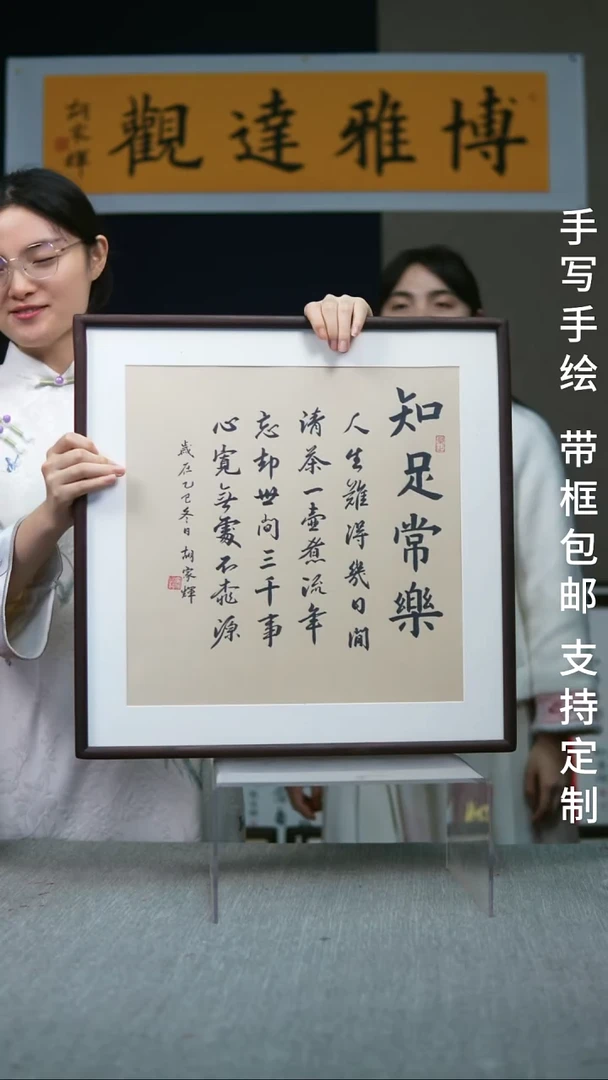 博雅達觀
胡家輝
知足常樂
人生難得幾日閒
清茶一壺煮流年
忘却世间三千事
心寬無處不桃源
歲在乙巳冬日 胡家輝
手写手绘 带框包邮 支持定制